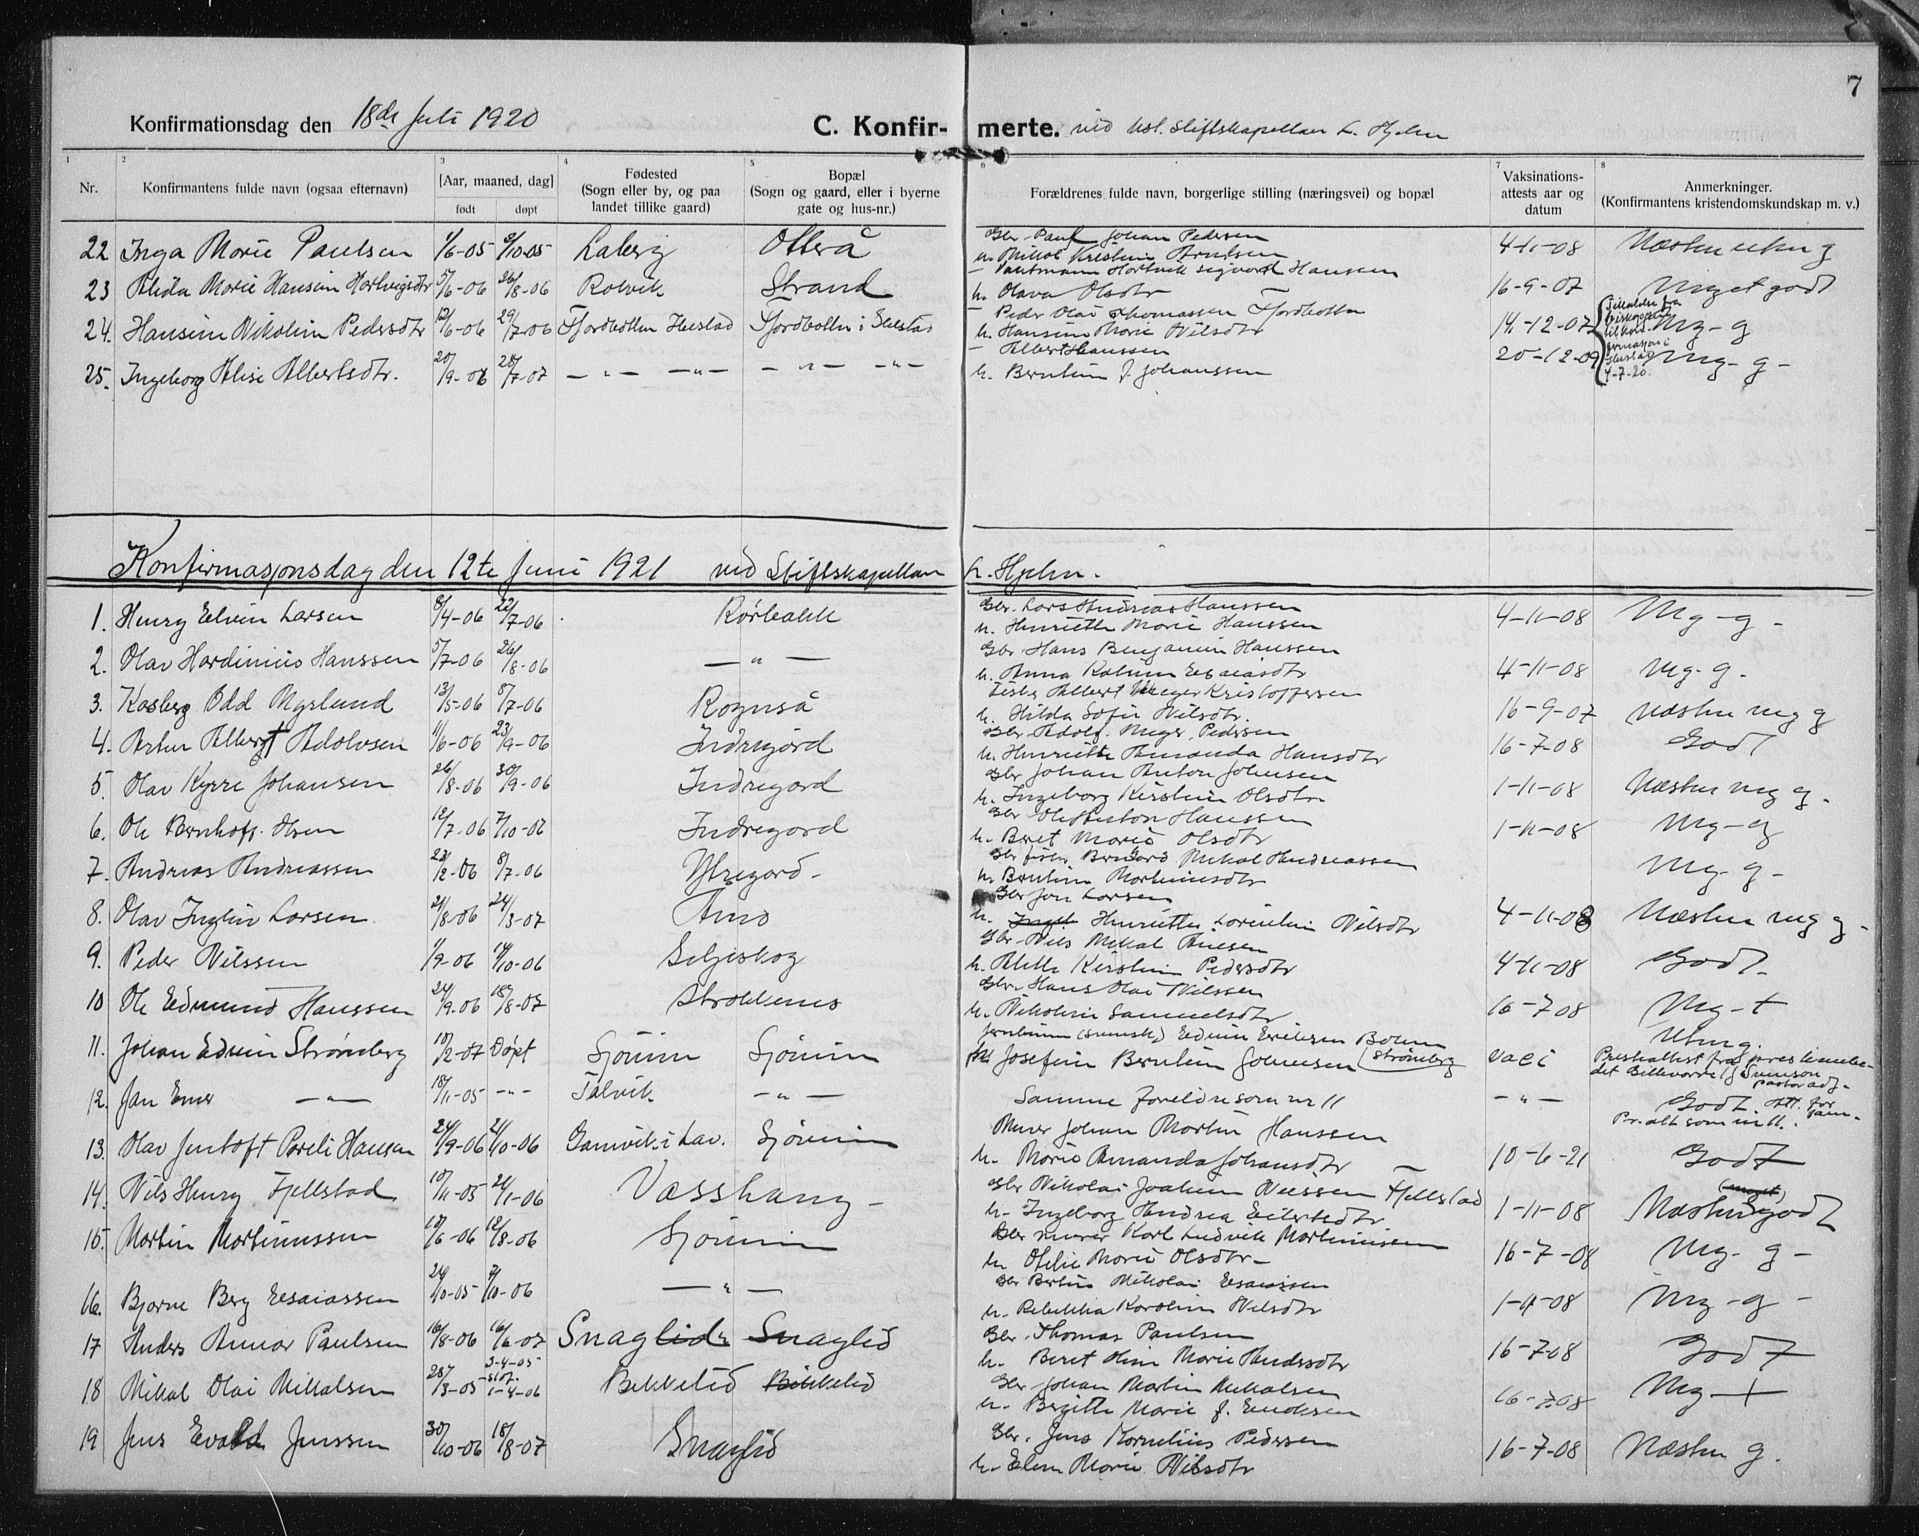 7
Konfirmationsdag den 18de Juli 1920 C. Konfir- merte. ved Stiftskapellan L. Hjelm
1 2 3 4 5 6 7 8
Nr. Konfirmantens fulde navn (ogsaa efternavn) [Aar, maaned, dag] født døpt Fødested (Sogn eller by, og paa landet tillike gaard) Bopæl (Sogn og gaard, eller i byerne gate og hus-nr.) Forældrenes fulde navn, borgerlige stilling (næringsvei) og bopæl Vaksinations-attests aar og datum Anmerkninger. (Konfirmantens kristendomskundskap m. v.)
22 Inga Marie Paulsen 1/6-05 9/10-05 Laberg Otterå Gbr. Paul Johan Pedersen 4-11-08
23 Alida Marie Hansine Hartvigsdtr 5/6-06 26/8-06 Rolvik Strand Hartvik Sigvard Hanssen h. Olava Olsdtr 16-9-07 Meget godt
24. Hansine Nikoline Pedersdtr 12/6-06 29/7-06 Fjordbotten Ibestad Fjordbotten i Ibestad Peder Olai Thomassen Fjordbotten h. Hansine Marie Nilsdtr 14-12-07 Mg-g
25. Ingeborg Alise Albertsdtr. 20/9-06 28/7-07 — " — — " — — " — — " — Albert Hanssen h. Berntine J. Johanssen 20-12-09 Mg-g-
4-7-20.
Konfirmasjonsdag den 12te Juni 1921 ved Stiftskapellan L. Hjelm.
1. Henry Edvin Larsen 8/4-06 22/7-06 Rørbakk Gbr. Lars Andreas Hanssen h. Henriette Marie Hanssen 4-11-08 Mg-g-
2. Olav Hardinius Hanssen 5/7-06 26/8-06 — " — Gbr Hans Benjamin Hanssen h. Anna Esaiasdtr 4-11-08 Mg-g.
3. Kasberg Odd Myrlund 13/5-06 8/7-06 Rognså Albert Meyer Kristoffersen h. Hilda Sofie Nilsdtr. 16-9-07 Næsten meg g
4. Artur Albert Adolvsen 11/6-06 23/9-06 Indregård Gbr Adolf Meyer Pedersen h. Henriette Amanda Hansdtr 16-7-08 Godt
5. Olav Kyrre Johansen 26/8-06 30/9-06 Indregård Gbr Johan Anton Johnsen h. Ingeborg Kirstine Olsdtr 1-11-08 Næsten meg g.
6. Ole Bernhoff Olsen 12/7-06 7/10-06 Indregård Gbr Ole Anton Hanssen h. Beret Marie Olsdtr 1-11-08 Mg-g
7. Andreas Andreassen 23/2-06 8/7-06 Ytregård- Gbr fisker Bernhard Mikal Andreassen h. Berntine Martinusdtr Mg-g-
8. Olav Inglin Larsen 21/8-06 24/3-07 Årnes Gbr Jon Larsen h. Henriette Lorentine Nilsdtr 4-11-08 Næsten meg g-
9. Peder Nilssen 1/9-06 14/10-06 Seljeskog Gbr Nils Mikal h. Alette Kirstine Pedersdtr 4-11-08 Godt.
10 Ole Edmund Hanssen 24/9-06 18/8-07 Strokkenes Gbr Hans Olai Nilssen h. Nikoline Samuelsdtr 16-7-08 Mg-t
11. Johan Edvin Strømberg 10/2-07 Døpt Sjøvein Sjøvein (svensk) Edvin Eriksen h Josefine Berntine Johnsen (Strømberg vacc Uteng.
12. Jan Einer — " — 18/11-05 -"- Talvik — " — Samme foreldre som nr 11 — " — Godt.
13. Olav Jentoft Poreli Hansen 24/9-06 21/10-06 Gamvik i Lav. Sjøvein Murer Johan Martin Hanssen h. Marie Amanda Johansdtr 10-6-21 Godt
14. Nils Henry Fjellstad 10/11-05 21/1-06 Vasshaug- Gbr Nikolai Joakim Nilssen Fjellstad h. Ingeborg Andrea Eilertsdtr 1-11-08 Næsten godt
15. Martin Martinussen 17/6-06 12/8-06 Sjøvein Gbr murer Karl Ludvik Martinussen h Ofelie Marie Olsdtr- 16-7-08 Mg-g-
16. Bjarne Berg Esaiassen 24/10-05 7/10-06 — " — Gbr Bertin Nikolai Esaiassen h. Rebekka Karoline Nilsdtr 1-11-08 Mg-g-
17 Anders Annar Paulsen 16/8-06 16/6-07 Snaglid Snaglid Gbr. Thomas Paulsen h. Beret Oline Marie Andersdtr 16-7-08 Godt
18 Mikal Olai Mikalsen 28/3-05 3-4-05 1-4-06 Bekkelid Bekkelid Gbr Johan Martin Mikalsen h. Birgitte Marie J. Enoksen 16-7-08 Mg-+
19 Jens Evald Jenssen 30/10-06 18/8-07 Snaglid Gbr. Jens Kornelius Pedersen h. Elen Marie Nilsdtr 16-7-08 Næsten g.